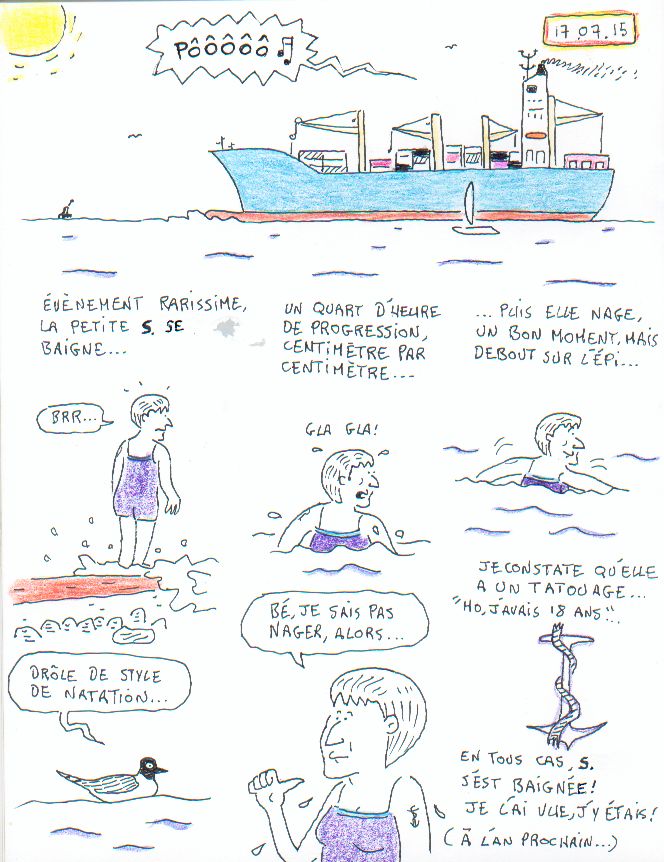 PÔÔÔÔÔ
17.07.15
ÉVÈNEMENT RARISSIME,
LA PETITE S. SE
BAIGNE...
UN QUART D'HEURE
DE PROGRESSION,
CENTIMÈTRE PAR
CENTIMÈTRE...
...PUIS ELLE NAGE,
UN BON MOMENT, MAIS
DEBOUT SUR L'ÉPI...
BRR...
GLA GLA!
JE CONSTATE QU'ELLE
A UN TATOUAGE...
"HO, J'AVAIS 18 ANS"...
DRÔLE DE STYLE
DE NATATION...
BÉ, JE SAIS PAS
NAGER, ALORS...
EN TOUS CAS, S.
S'EST BAIGNÉE!
JE L'AI VUE, J'Y ÉTAIS!
(À L'AN PROCHAIN...)